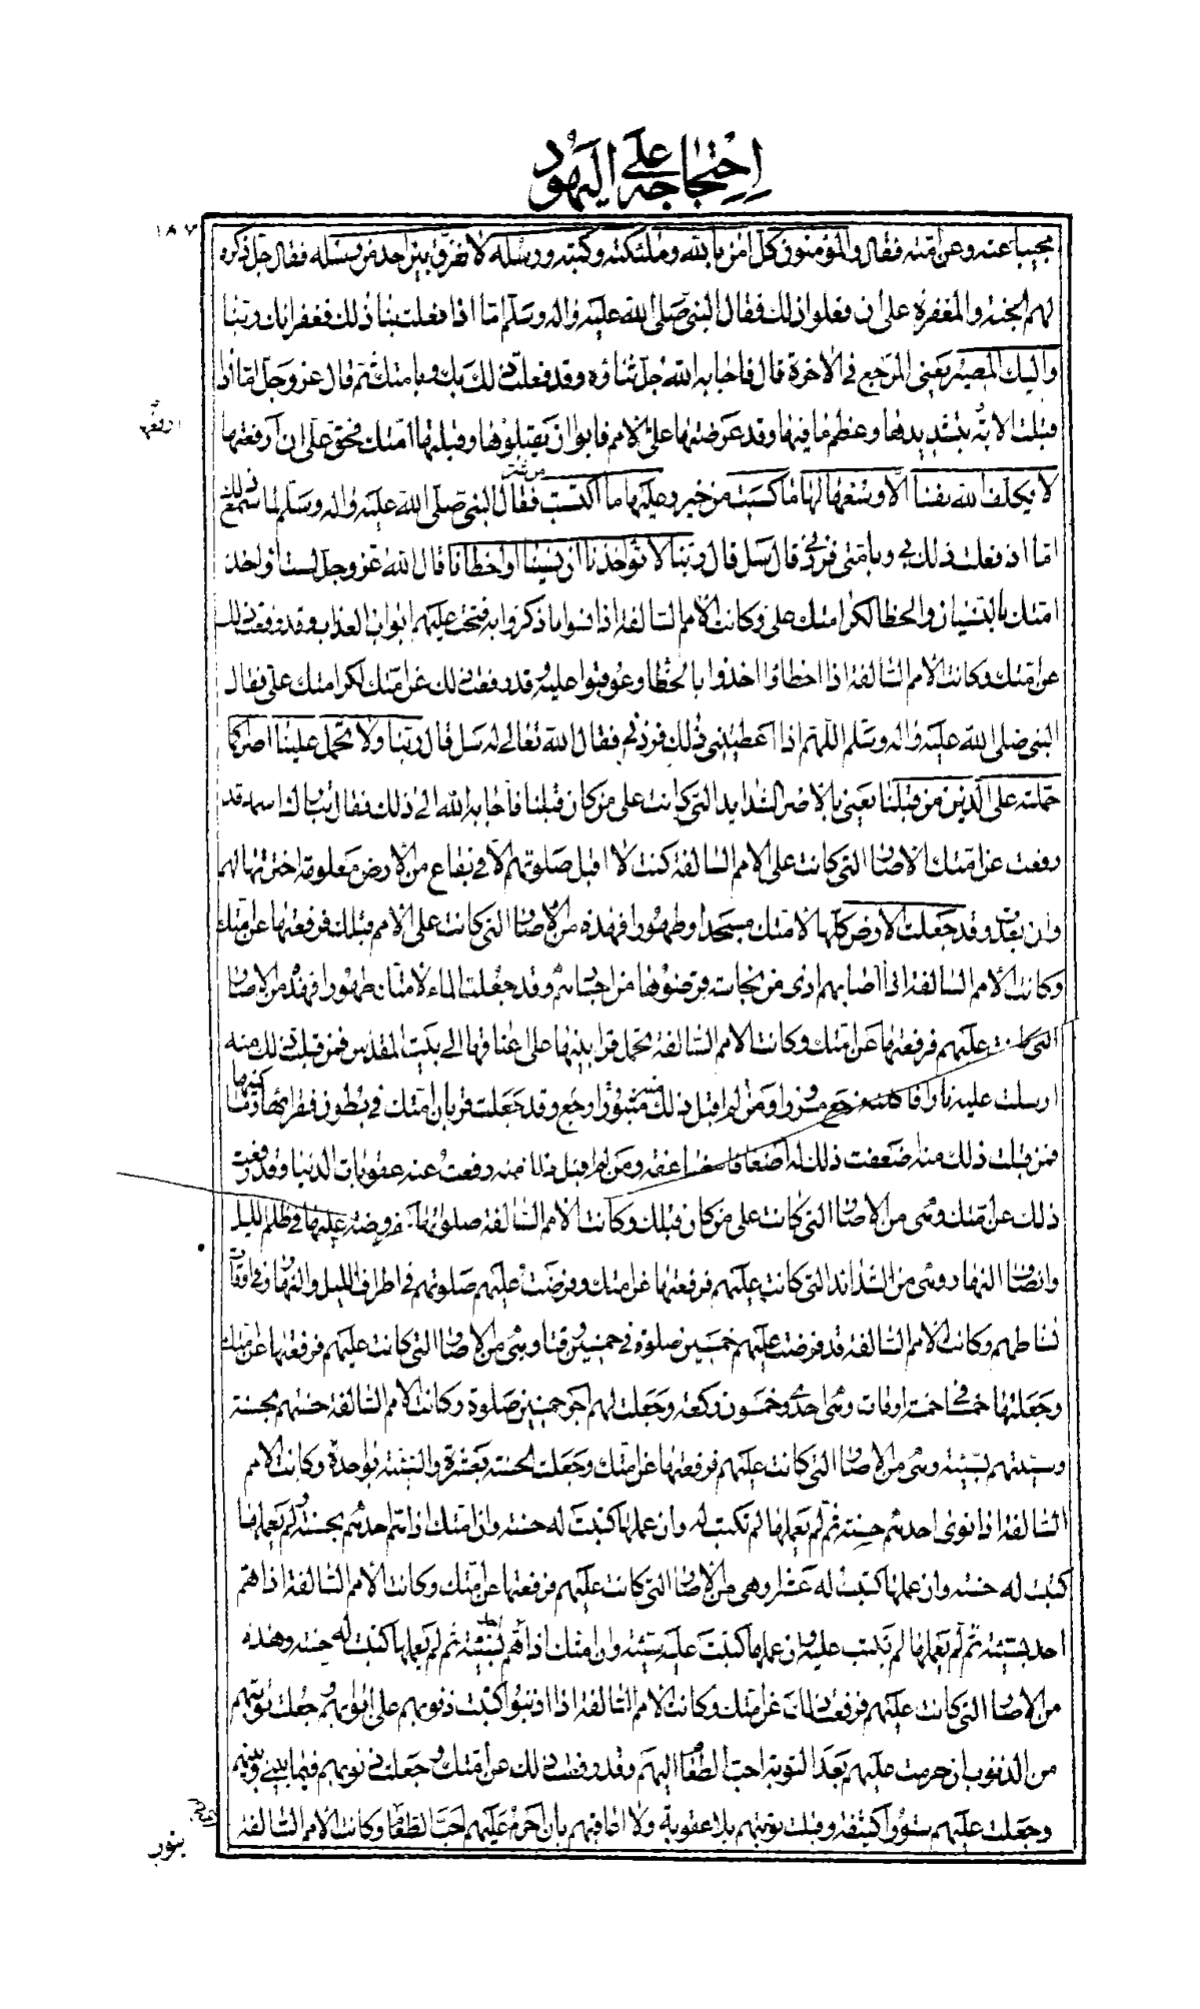 احتجاجه على اليهود
١٨٧
مجيبا عنه وعن امته فقال والمؤمنون كل امن بالله وملئكته وكتبه ورسله لا نفرق بين احد من رسله فقال جل ذكره
لهم الجنة والمغفرة على ان فعلوا ذلك فقال النبي صلى الله عليه واله وسلم اما اذا فعلت بنا ذلك فغفرانك ربنا
واليك المصير يعني المرجع في الاخرة قال فاجابه الله جل ثناؤه وقد فعلت ذلك بك وبامتك ثم قال عز وجل اما اذا
قبلت الاية بتشديدها وعظم ما فيها وقد عرضتها على الامم فابوا ان يقبلوها وقبلتها امتك فحق على ان ارفعها
لا يكلف الله نفسا الا وسعها لها ما كسبت من خير وعليها ما اكتسبت من شر فقال النبي صلى الله عليه واله وسلم لما سمع ذلك
اما اذ فعلت ذلك بي وبامتي فزدني قال سل قال ربنا لا تؤاخذنا ان نسينا او اخطانا قال الله عز وجل لست اؤاخذ
امتك بالنسيان والخطا لكرامتك على وكانت الامم السالفة اذا نسوا ما ذكروا به فتحت عليهم ابواب العذاب وقد رفعت ذلك
عن امتك وكانت الامم السالفة اذا اخطاؤا اخذوا بالخطا وعوقبوا عليه وقد رفعت ذلك عن امتك لكرامتك على فقال
النبي صلى الله عليه واله وسلم اللهم اذا اعطيتني ذلك فزدني فقال الله تعالى له سل قال ربنا ولا تحمل علينا اصرا كما
حملته على الذين من قبلنا يعني بالاصر الشدايد التي كانت على من كان قبلنا فاجابه الله الى ذلك فقال تبارك اسمه قد
رفعت عن امتك الاصار التي كانت على الامم السالفة كنت لا اقبل صلوتهم الا في بقاع من الارض معلومة اخترتها لهم
وان بعدت وقد جعلت الارض كلها لامتك مسجدا وطهورا فهذه من الاصار التي كانت على الامم قبلك فرفعتها عن امتك
وكانت الامم السالفة اذا اصابهم اذى من نجاسة قرضوها من اجسادهم وقد جعلت الماء لامتك طهورا فهذه من الاصار
التي كانت عليهم فرفعتها عن امتك وكانت الامم السالفة تحمل قرابينها على اعناقها الى بيت المقدس فمن قبلت ذلك منه
ارسلت عليه نارا فاكلته فرجع مسرورا ومن لم اقبل ذلك منه رجع مثبورا وقد جعلت قربان امتك في بطون فقرائها ومساكينها
فمن قبلت ذلك منه اضعفت ذلك له اضعافا مضاعفة ومن لم اقبل ذلك منه رفعت عنه عقوبات الدنيا وقد رفعت
ذلك عن امتك وهي من الاصار التي كانت على من كان قبلك وكانت الامم السالفة صلوتها مفروضة عليها في ظلم الليل
وانصاف النهار وهي من الشدائد التي كانت عليهم فرفعتها عن امتك وفرضت عليهم صلوتهم في اطراف الليل والنهار وفي اوقات
نشاطهم وكانت الامم السالفة قد فرضت عليهم خمسين صلوة في خمسين وقتا وهي من الاصار التي كانت عليهم فرفعتها عن امتك
وجعلتها خمسا في خمسة اوقات وهي احدى وخمسون ركعة وجعلت لهم اجر خمسين صلوة وكانت الامم السالفة حسنتهم بحسنة
وسيئتهم بسيئة وهي من الاصار التي كانت عليهم فرفعتها عن امتك وجعلت الحسنة بعشرة والسيئة بواحدة وكانت الامم
السالفة اذا نوى احدهم حسنة ثم لم يعملها لم تكتب له وان عملها كتبت له حسنة وان امتك اذا هم احدهم بحسنة ولم يعملها
كتبت له حسنة وان عملها كتبت له عشرا وهي من الاصار التي كانت عليهم فرفعتها عن امتك وكانت الامم السالفة اذا هم
احدهم بسيئة ثم لم يعملها لم تكتب عليه وان عملها كتبت عليه سيئة وان امتك اذا هم احدهم بسيئة ثم لم يعملها كتبت له حسنة وهذه
من الاصار التي كانت عليهم فرفعت ذلك عن امتك وكانت الامم السالفة اذا اذنبوا كتبت ذنوبهم على ابوابهم وجعلت توبتهم
من الذنوب ان حرمت عليهم بعد التوبة احب الطعام اليهم وقد رفعت ذلك عن امتك وجعلت ذنوبهم فيما بيني وبينهم
وجعلت عليهم ستورا كثيفة وقبلت توبتهم بلا عقوبة ولا اعاقبهم بان احرم عليهم احب الطعام وكانت الامم السالفة
يتوب